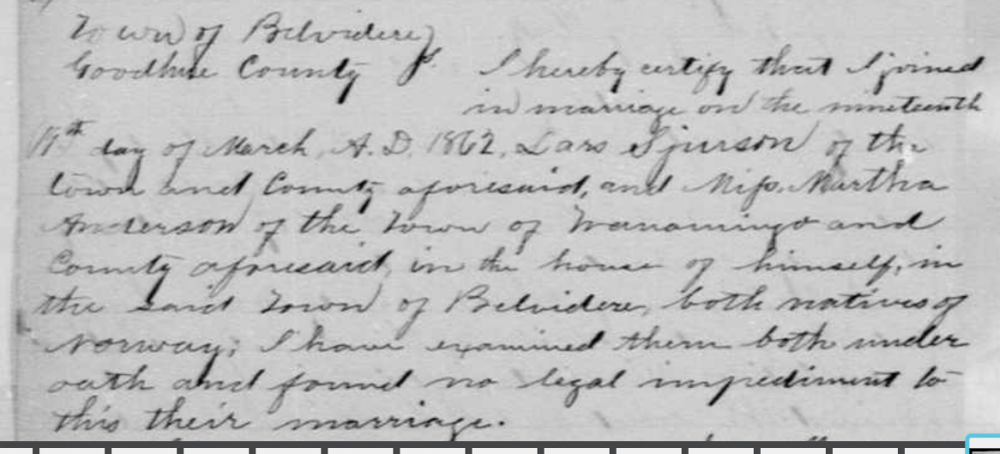 Town of Belvidere }
Goodhue County } s. I hereby certify that I joined
in marriage on the nineteenth
19th day of March, A.D. 1862, Lars Sjurson of the
town and County aforesaid, and Miss. Martha
Anderson of the Town of Wanamingo and
County aforesaid, in the house of himself, in
the said Town of Belvidere, both natives of
Norway; I have examined them both under
oath and found no legal impediment to
this their marriage.